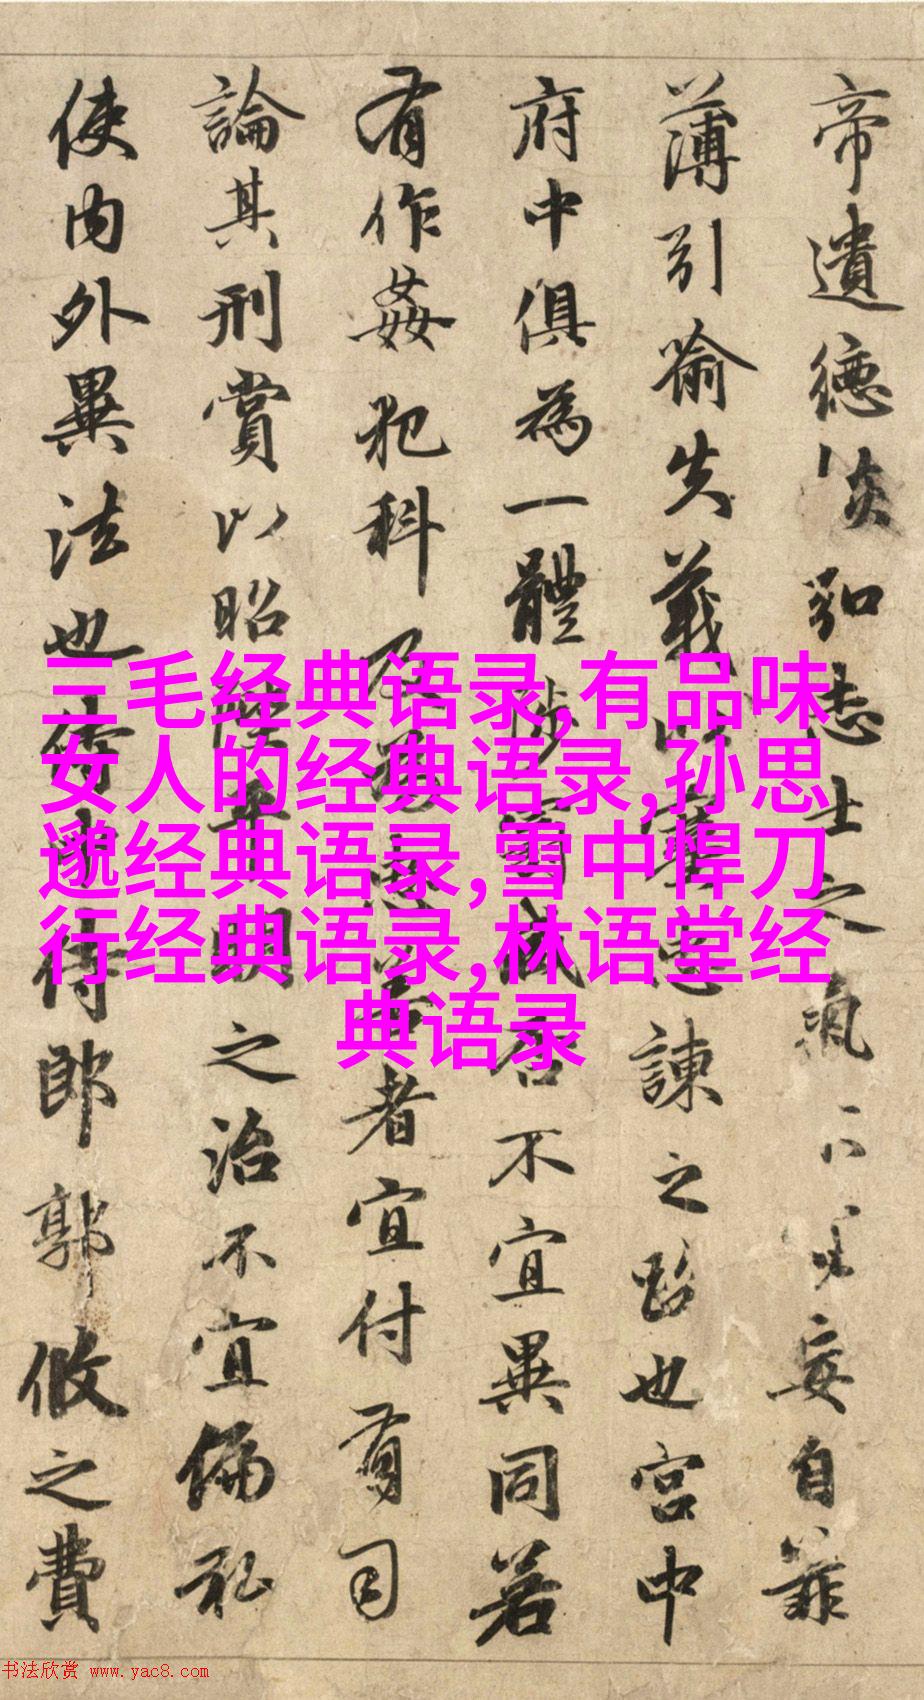 帝遺德恢弘志士之氣不妄自菲
薄引喻失義以塞忠諫之路也宮中
府中俱為一體陟罰臧否不宜異同若
有作姦犯科及為忠善者宜付有司
論其刑賞以昭陛平明之治不宜偏私
使内外異法也侍中侍郎郭攸之費
三毛经典语录,有品味
女人的经典语录,孙思
邈经典语录,雪中悍刀
行经典语录,林语堂经
典语录
书法欣赏 www.yac8.com